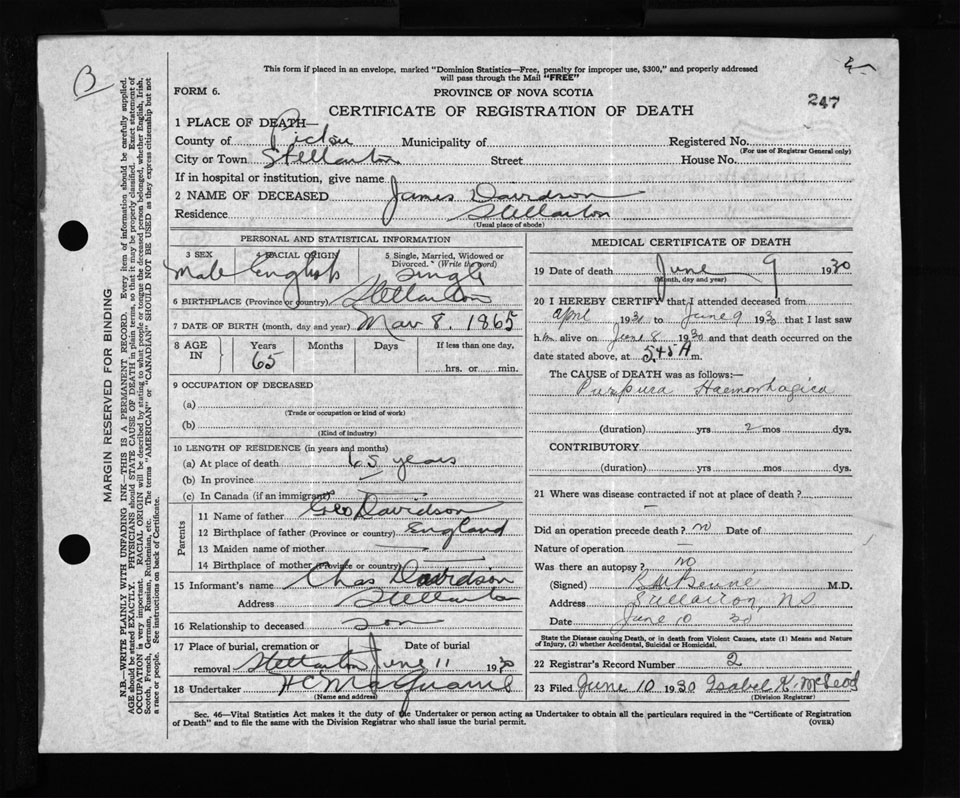 B
This form if placed in an envelope, marked "Dominion Statistics—Free, penalty for improper use, $300," and properly addressed
will pass through the Mail "FREE"
FORM 6.
PROVINCE OF NOVA SCOTIA
247
CERTIFICATE OF REGISTRATION OF DEATH
1 PLACE OF DEATH—
County of Pictou Municipality of Registered No.
(For use of Registrar General only)
City or Town Stellarton Street House No.
If in hospital or institution, give name
2 NAME OF DECEASED James Davidson
Residence Stellarton
(Usual place of abode)
MARGIN RESERVED FOR BINDING
N.B.—WRITE PLAINLY WITH UNFADING INK—THIS IS A PERMANENT RECORD. Every item of information should be carefully supplied.
AGE should be stated EXACTLY. PHYSICIANS should STATE CAUSE OF DEATH in plain terms, so that it may be properly classified. Exact statement of
OCCUPATION is very important. RACIAL ORIGIN will be described by stating to what people or tongue the deceased person belonged, whether English, Irish,
Scotch, French, German, Russian, Ruthenian, etc. The terms "AMERICAN" or "CANADIAN" SHOULD NOT BE USED as they express citizenship but not
a race or people. See instructions on back of Certificate.
PERSONAL AND STATISTICAL INFORMATION
3 SEX RACIAL ORIGIN 5 Single, Married, Widowed or
Divorced. (Write the word)
Male English Single
6 BIRTHPLACE (Province or country) Stellarton
7 DATE OF BIRTH (month, day and year) Mar 8. 1865
8 AGE IN Years Months Days If less than one day,
65 hrs. or min.
9 OCCUPATION OF DECEASED
(a)
(Trade or occupation or kind of work)
(b)
(Kind of industry)
10 LENGTH OF RESIDENCE (in years and months)
(a) At place of death 65 years
(b) In province
(c) In Canada (if an immigrant)
Parents
11 Name of father Geo Davidson
12 Birthplace of father (Province or country) England
13 Maiden name of mother
14 Birthplace of mother (Province or country)
15 Informant's name Chas Davidson
Address Stellarton
16 Relationship to deceased son
17 Place of burial, cremation or Date of burial
removal Stellarton June 11 1930
18 Undertaker
(Name and address)
MEDICAL CERTIFICATE OF DEATH
19 Date of death June 9 1930
(Month, day and year)
20 I HEREBY CERTIFY that I attended deceased from
April 1930 to June 9 1930 that I last saw
him alive on June 8 1930 and that death occurred on the
date stated above, at 5.45 A m.
The CAUSE of DEATH was as follows:—
Purpura Haemorrhagica
(duration) yrs 2 mos dys.
CONTRIBUTORY
(duration) yrs mos dys.
21 Where was disease contracted if not at place of death?
Did an operation precede death? no Date of
Nature of operation
Was there an autopsy? no
(Signed) M.D.
Address Stellarton, NS
Date June 10 30
State the Disease causing Death, or in death from Violent Causes, state (1) Means and Nature
of Injury, (2) whether Accidental, Suicidal or Homicidal.
22 Registrar's Record Number 2
23 Filed June 10 1930 Isabel K. McLeod
(Division Registrar)
Sec. 46—Vital Statistics Act makes it the duty of the Undertaker or person acting as Undertaker to obtain all the particulars required in the "Certificate of Registration
of Death" and to file the same with the Division Registrar who shall issue the burial permit.
(OVER)